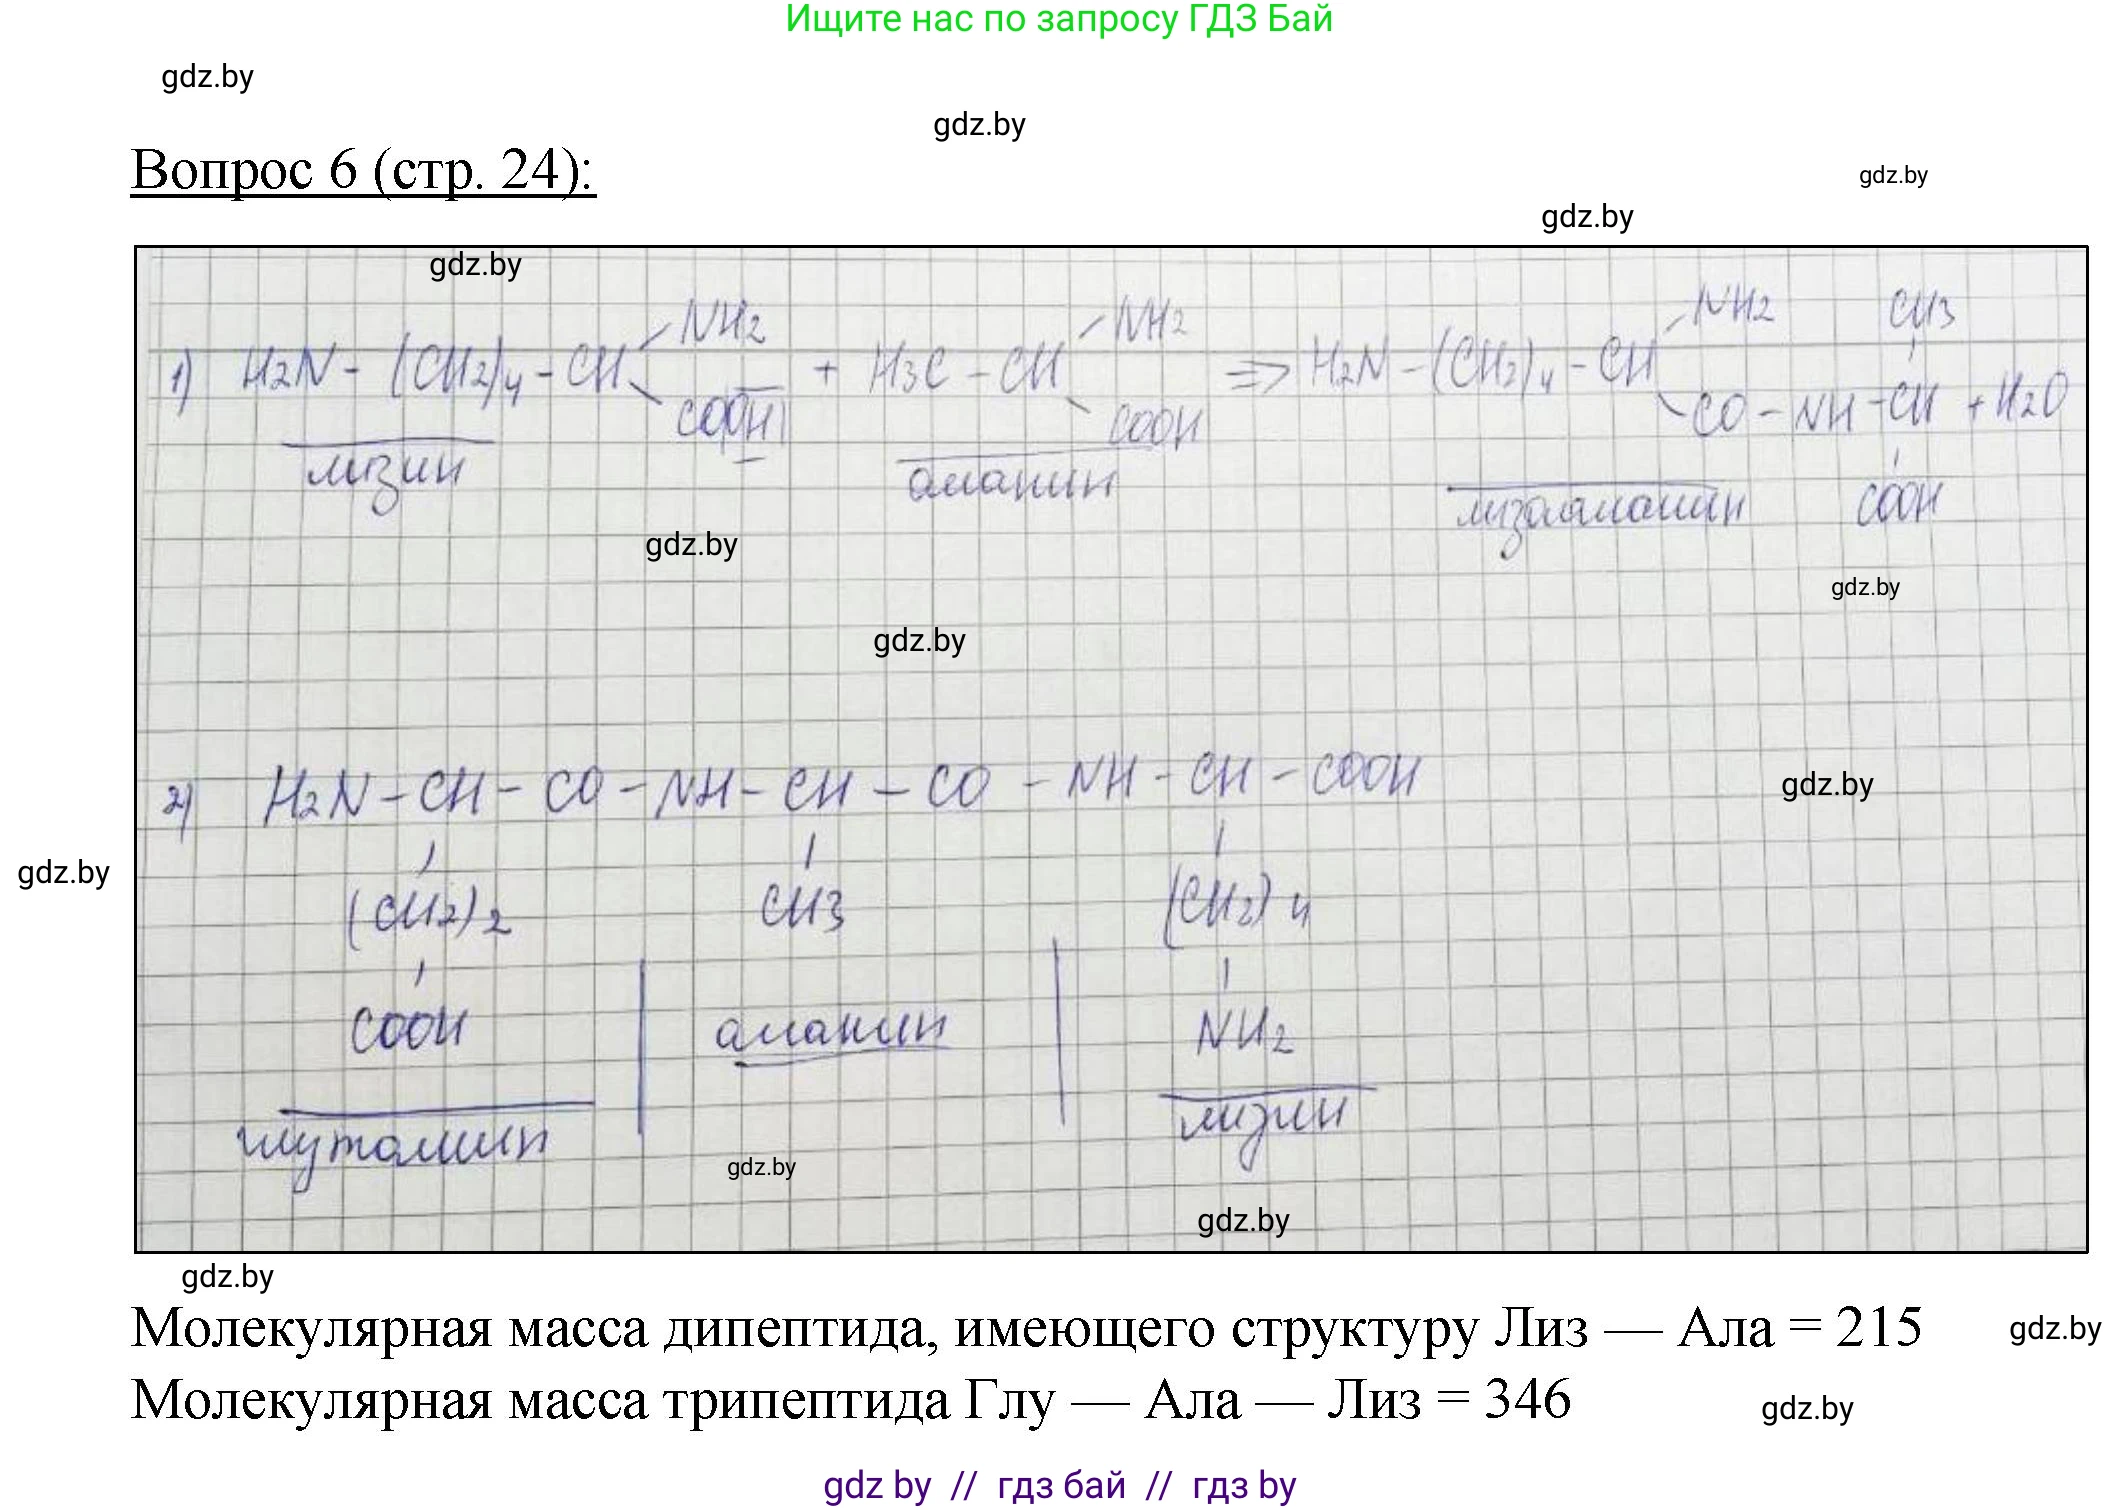 Ищите нас по запросу ГДЗ Бай
gdz.by
gdz.by
Вопрос 6 (стр. 24):
gdz.by
gdz.by
gdz.by
NH2 NH2 NH2 CH3
1) H2N - (CH2)4 - CH + H3C - CH => H2N - (CH2)4 - CH
COOH COOH CO - NH - CH + H2O
лизин аланин лизолаланин COOH
gdz.by
gdz.by
gdz.by
2) H2N - CH - CO - NH - CH - CO - NH - CH - COOH
gdz.by
gdz.by
(CH2)2 CH3 (CH2)4
COOH аланин NH2
глутамин лизин
gdz.by
gdz.by
gdz.by
Молекулярная масса дипептида, имеющего структуру Лиз — Ала = 215
gdz.by
Молекулярная масса трипептида Глу — Ала — Лиз = 346
gdz.by
gdz by // гдз бай // гдз by